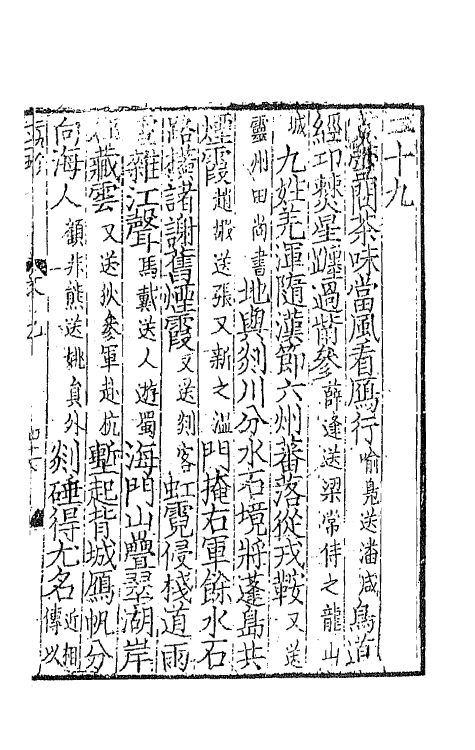 二十九
聞茶味當風看鴈行喻鳧送潘咸鳥道
經卭僰星躔過觜參薛逢送梁常侍之龍山
城九姓羌渾隨漢節六州蕃落從戎鞍又送
靈州田尚書地與剡川分水石境將蓬島共
煙霞趙嘏送張又新之溫門掩右軍餘水石
路橫諸謝舊煙霞又送剡客虹霓侵棧道雨
雪雜江聲馬戴送人遊蜀海門山疊翠湖岸
藏雲又送狄參軍赴杭塹起背城鴈帆分
向海人顧非熊送姚員外剡硾得尤名近相傳以